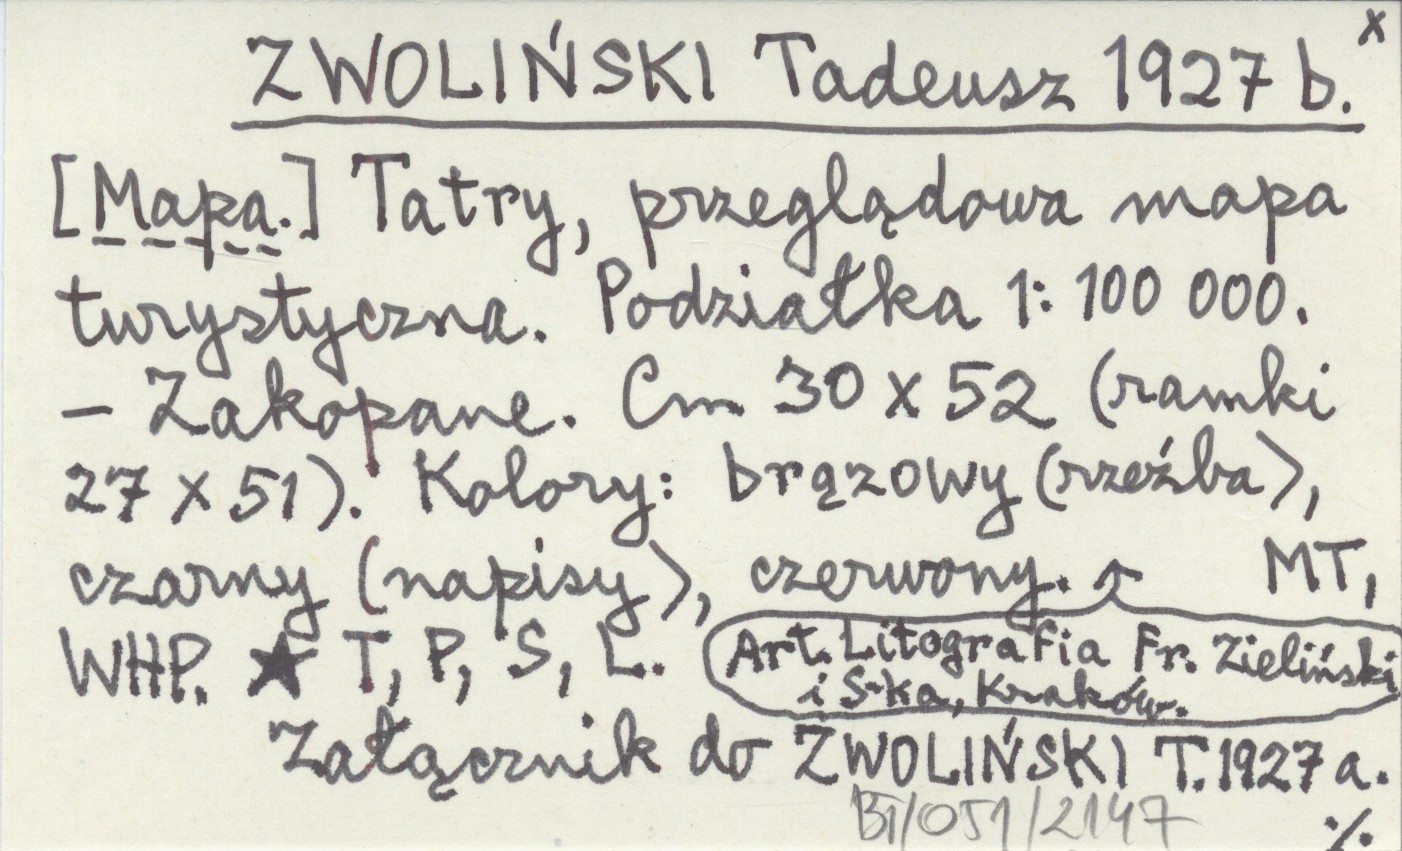 x
ZWOLIŃSKI Tadeusz 1927 b.
[Mapa.] Tatry, przeglądowa mapa
turystyczna. Podziałka 1:100 000.
– Zakopane. Cm 30 x 52 (ramki
27 x 51). Kolory: brązowy (rzeźba),
czarny (napisy), czerwony. MT,
WHP. ★ T, P, S, L.
Art. Litografia Fr. Zieliński
i S-ka, Kraków.
Załącznik do ZWOLIŃSKI T. 1927 a.
BT/051/2147
./.